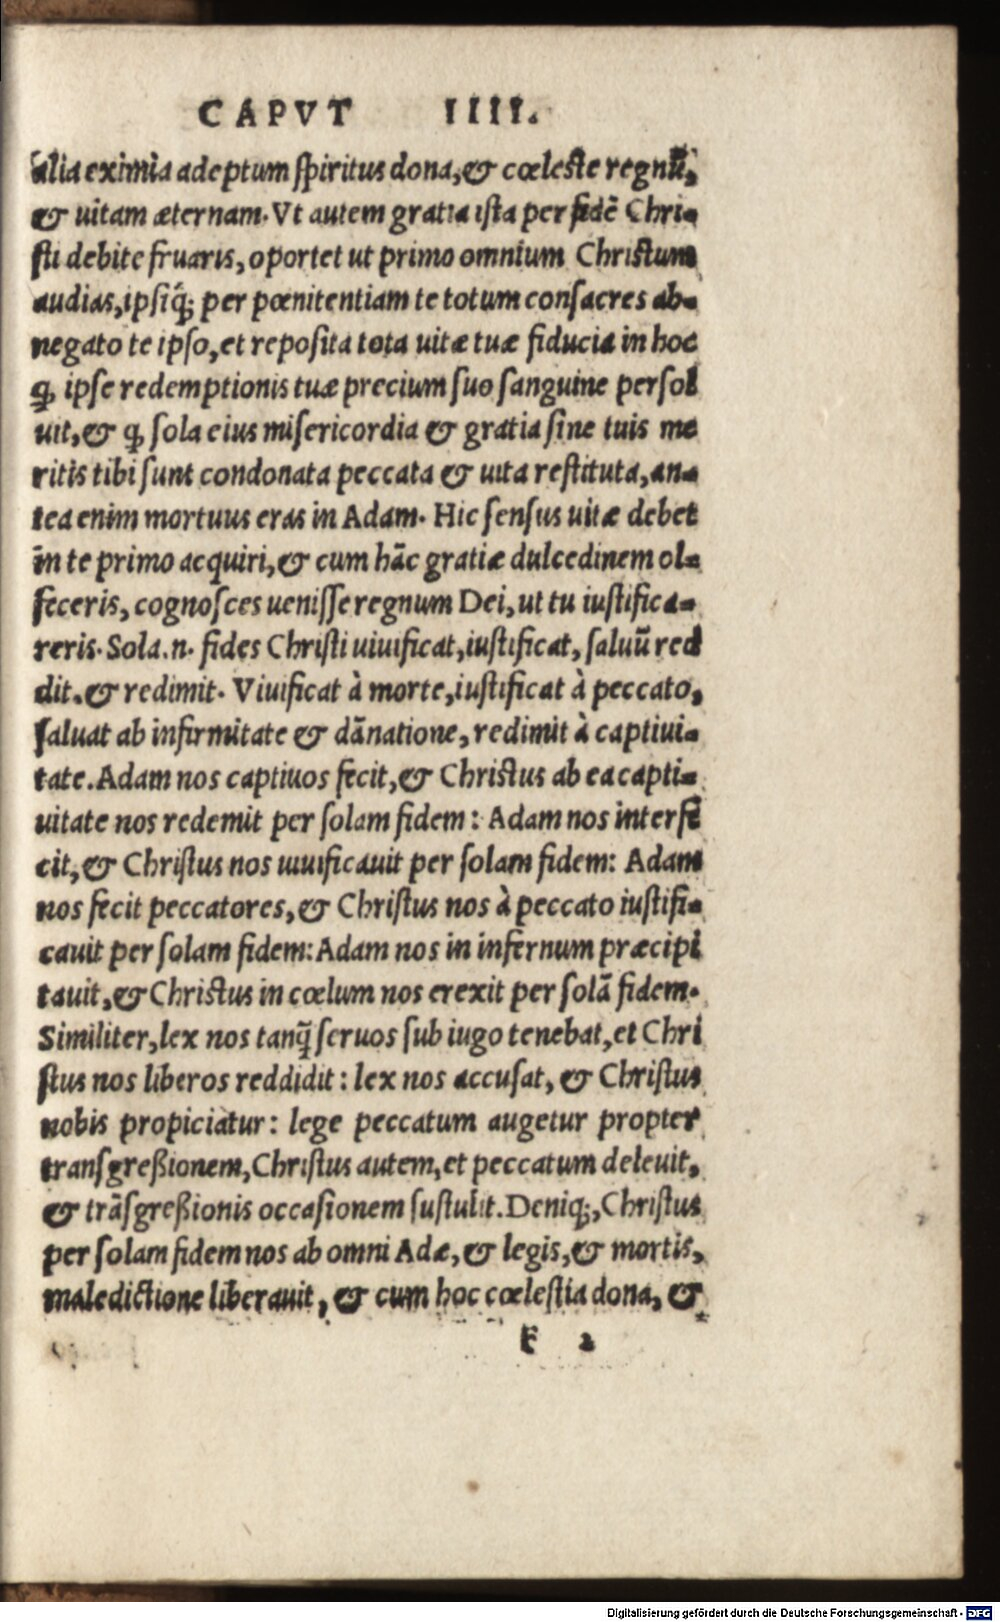 CAPVT IIII.
alia eximia adeptum spiritus dona, & cœleste regnũ,
& uitam æternam. Vt autem gratia ista per fidẽ Chri-
sti debite fruaris, oportet ut primo omnium Christum
audias, ipsiq́; per pœnitentiam te totum consacres ab-
negato te ipso, et reposita tota uitæ tuæ fiducia in hoc
ꝙ ipse redemptionis tuæ precium suo sanguine persol
uit, & ꝙ sola eius misericordia & gratia sine tuis me
ritis tibi sunt condonata peccata & uita restituta, an-
tea enim mortuus eras in Adam. Hic sensus uitæ debet
in te primo acquiri, & cum hãc gratiæ dulcedinem ol-
feceris, cognosces uenisse regnum Dei, ut tu iustifica-
reris. Sola .n. fides Christi uiuificat, iustificat, saluũ red
dit, & redimit. Viuificat à morte, iustificat à peccato,
saluat ab infirmitate & dãnatione, redimit à captiui-
tate. Adam nos captiuos fecit, & Christus ab ea capti-
uitate nos redemit per solam fidem: Adam nos interfe
cit, & Christus nos uiuificauit per solam fidem: Adam
nos fecit peccatores, & Christus nos à peccato iustifi-
cauit per solam fidem: Adam nos in infernum præcipi
tauit, & Christus in cœlum nos erexit per solã fidem.
Similiter, lex nos tanq̃ seruos sub iugo tenebat, et Chri
stus nos liberos reddidit: lex nos accusat, & Christus
nobis propiciatur: lege peccatum augetur propter
transgreßionem, Christus autem, et peccatum deleuit,
& trãsgreßionis occasionem sustulit. Deniq;, Christus
per solam fidem nos ab omni Adæ, & legis, & mortis,
maledictione liberauit, & cum hoc cœlestia dona, &
F 2
Digitalisierung gefördert durch die Deutsche Forschungsgemeinschaft - DFG